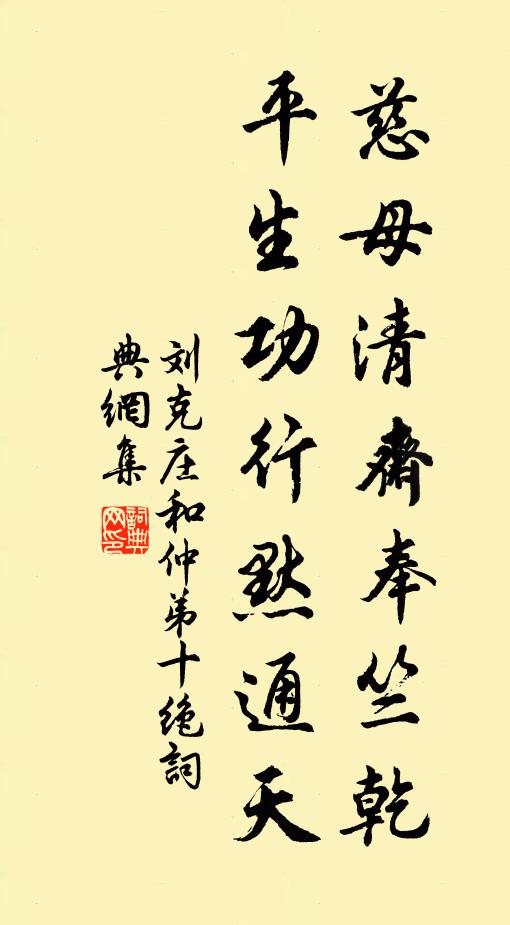 慈母清齋奉竺乾
平生功行默通天
刘克庄和仲弟十绝詞
典網集
詞典
网印